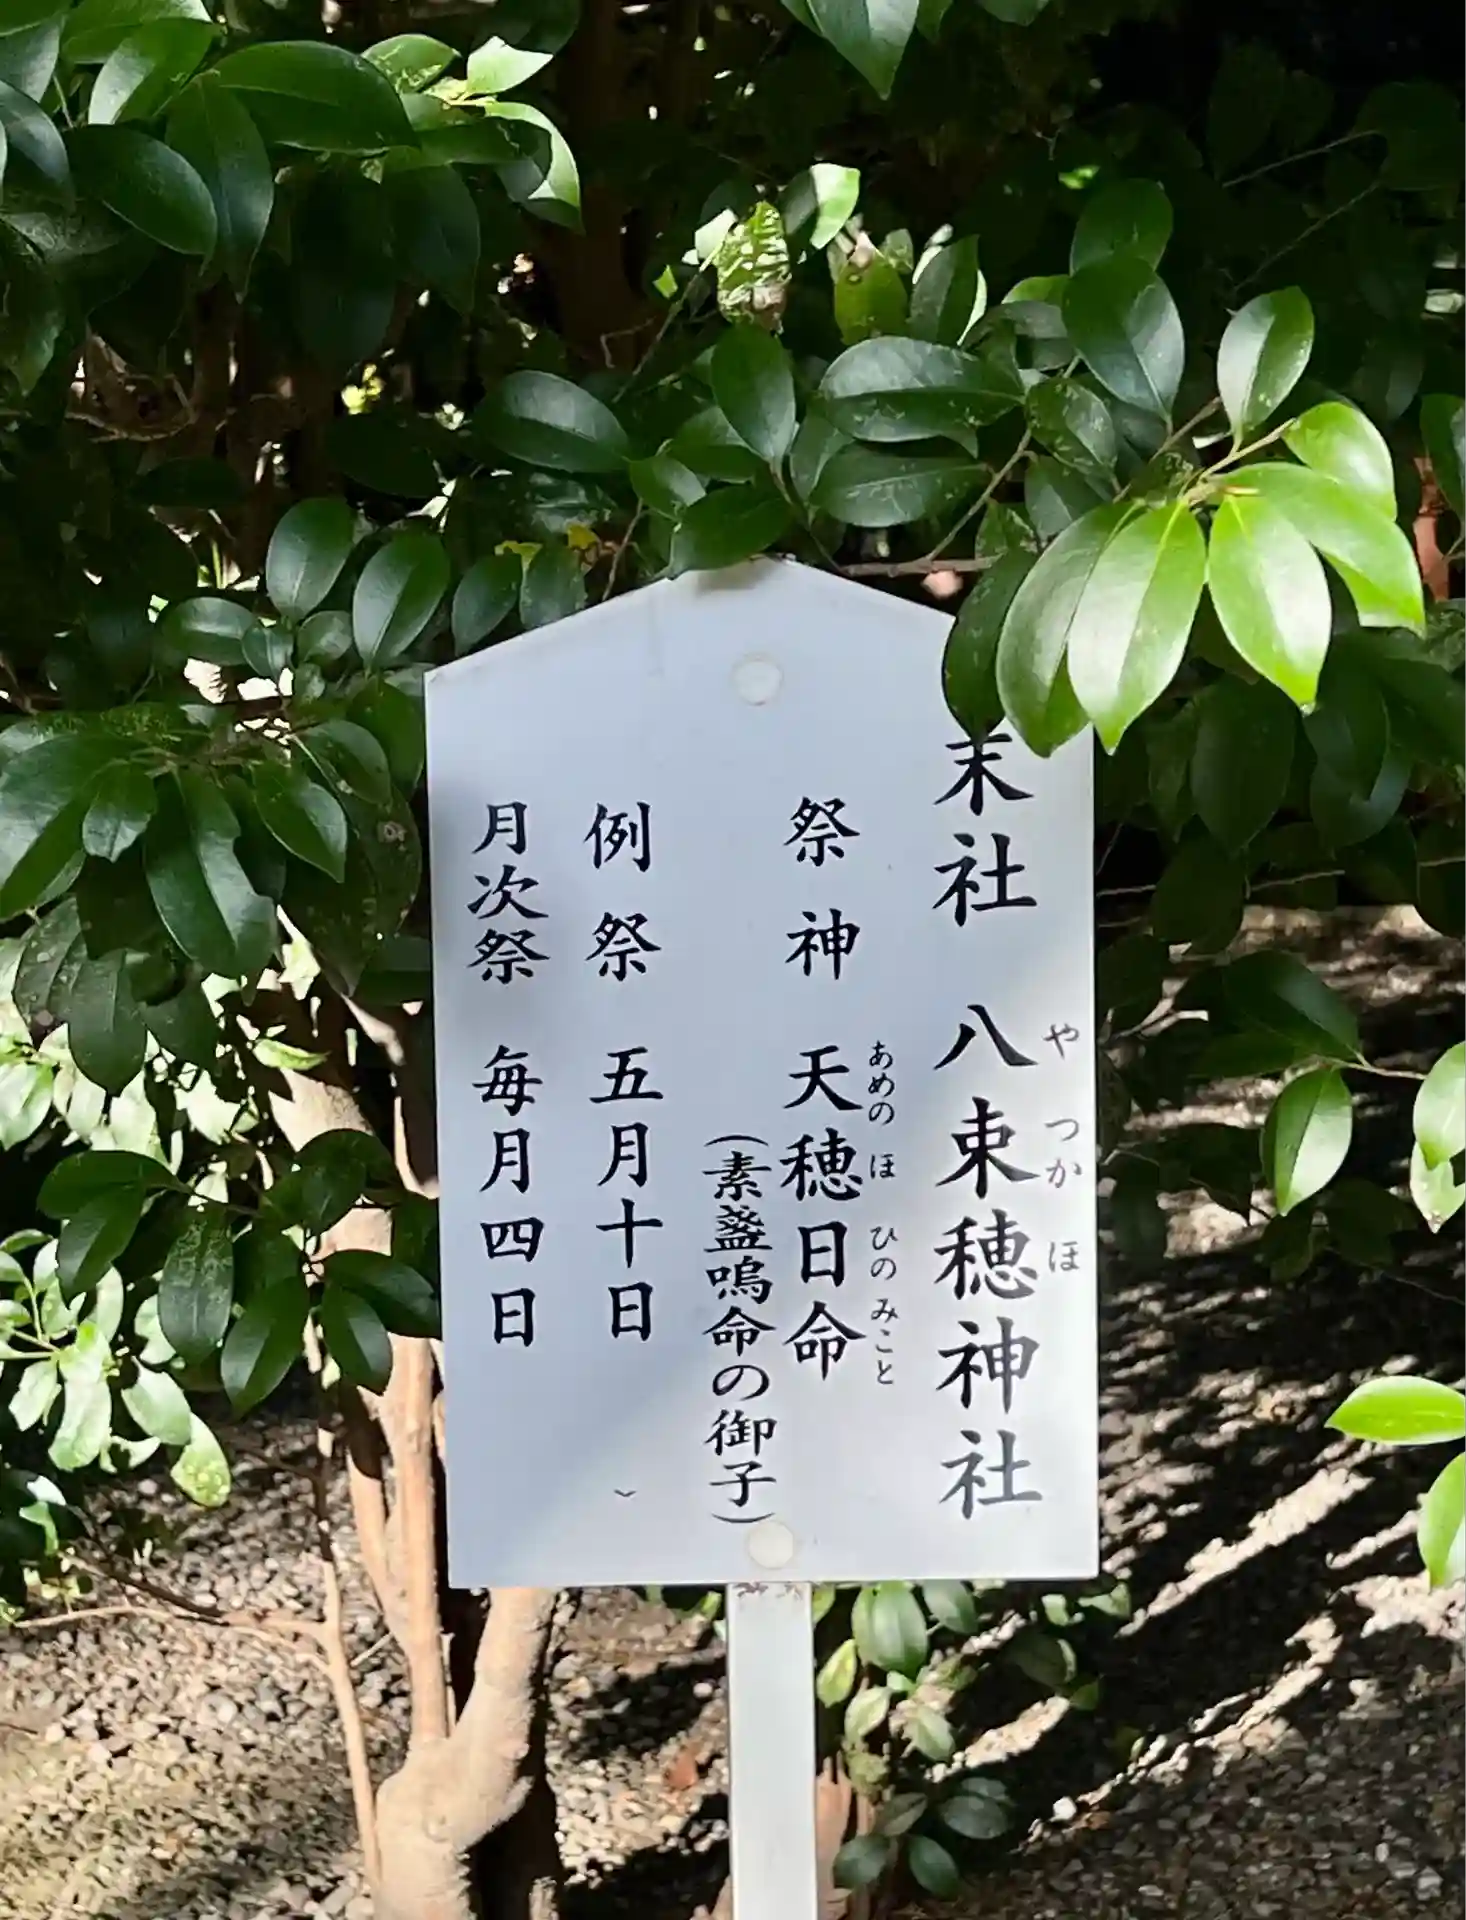 末社 八束穂神社
やつかほ
祭神 天穂日命
あめのほひのみこと
(素盞嗚命の御子)
例祭 五月十日
月次祭 毎月四日